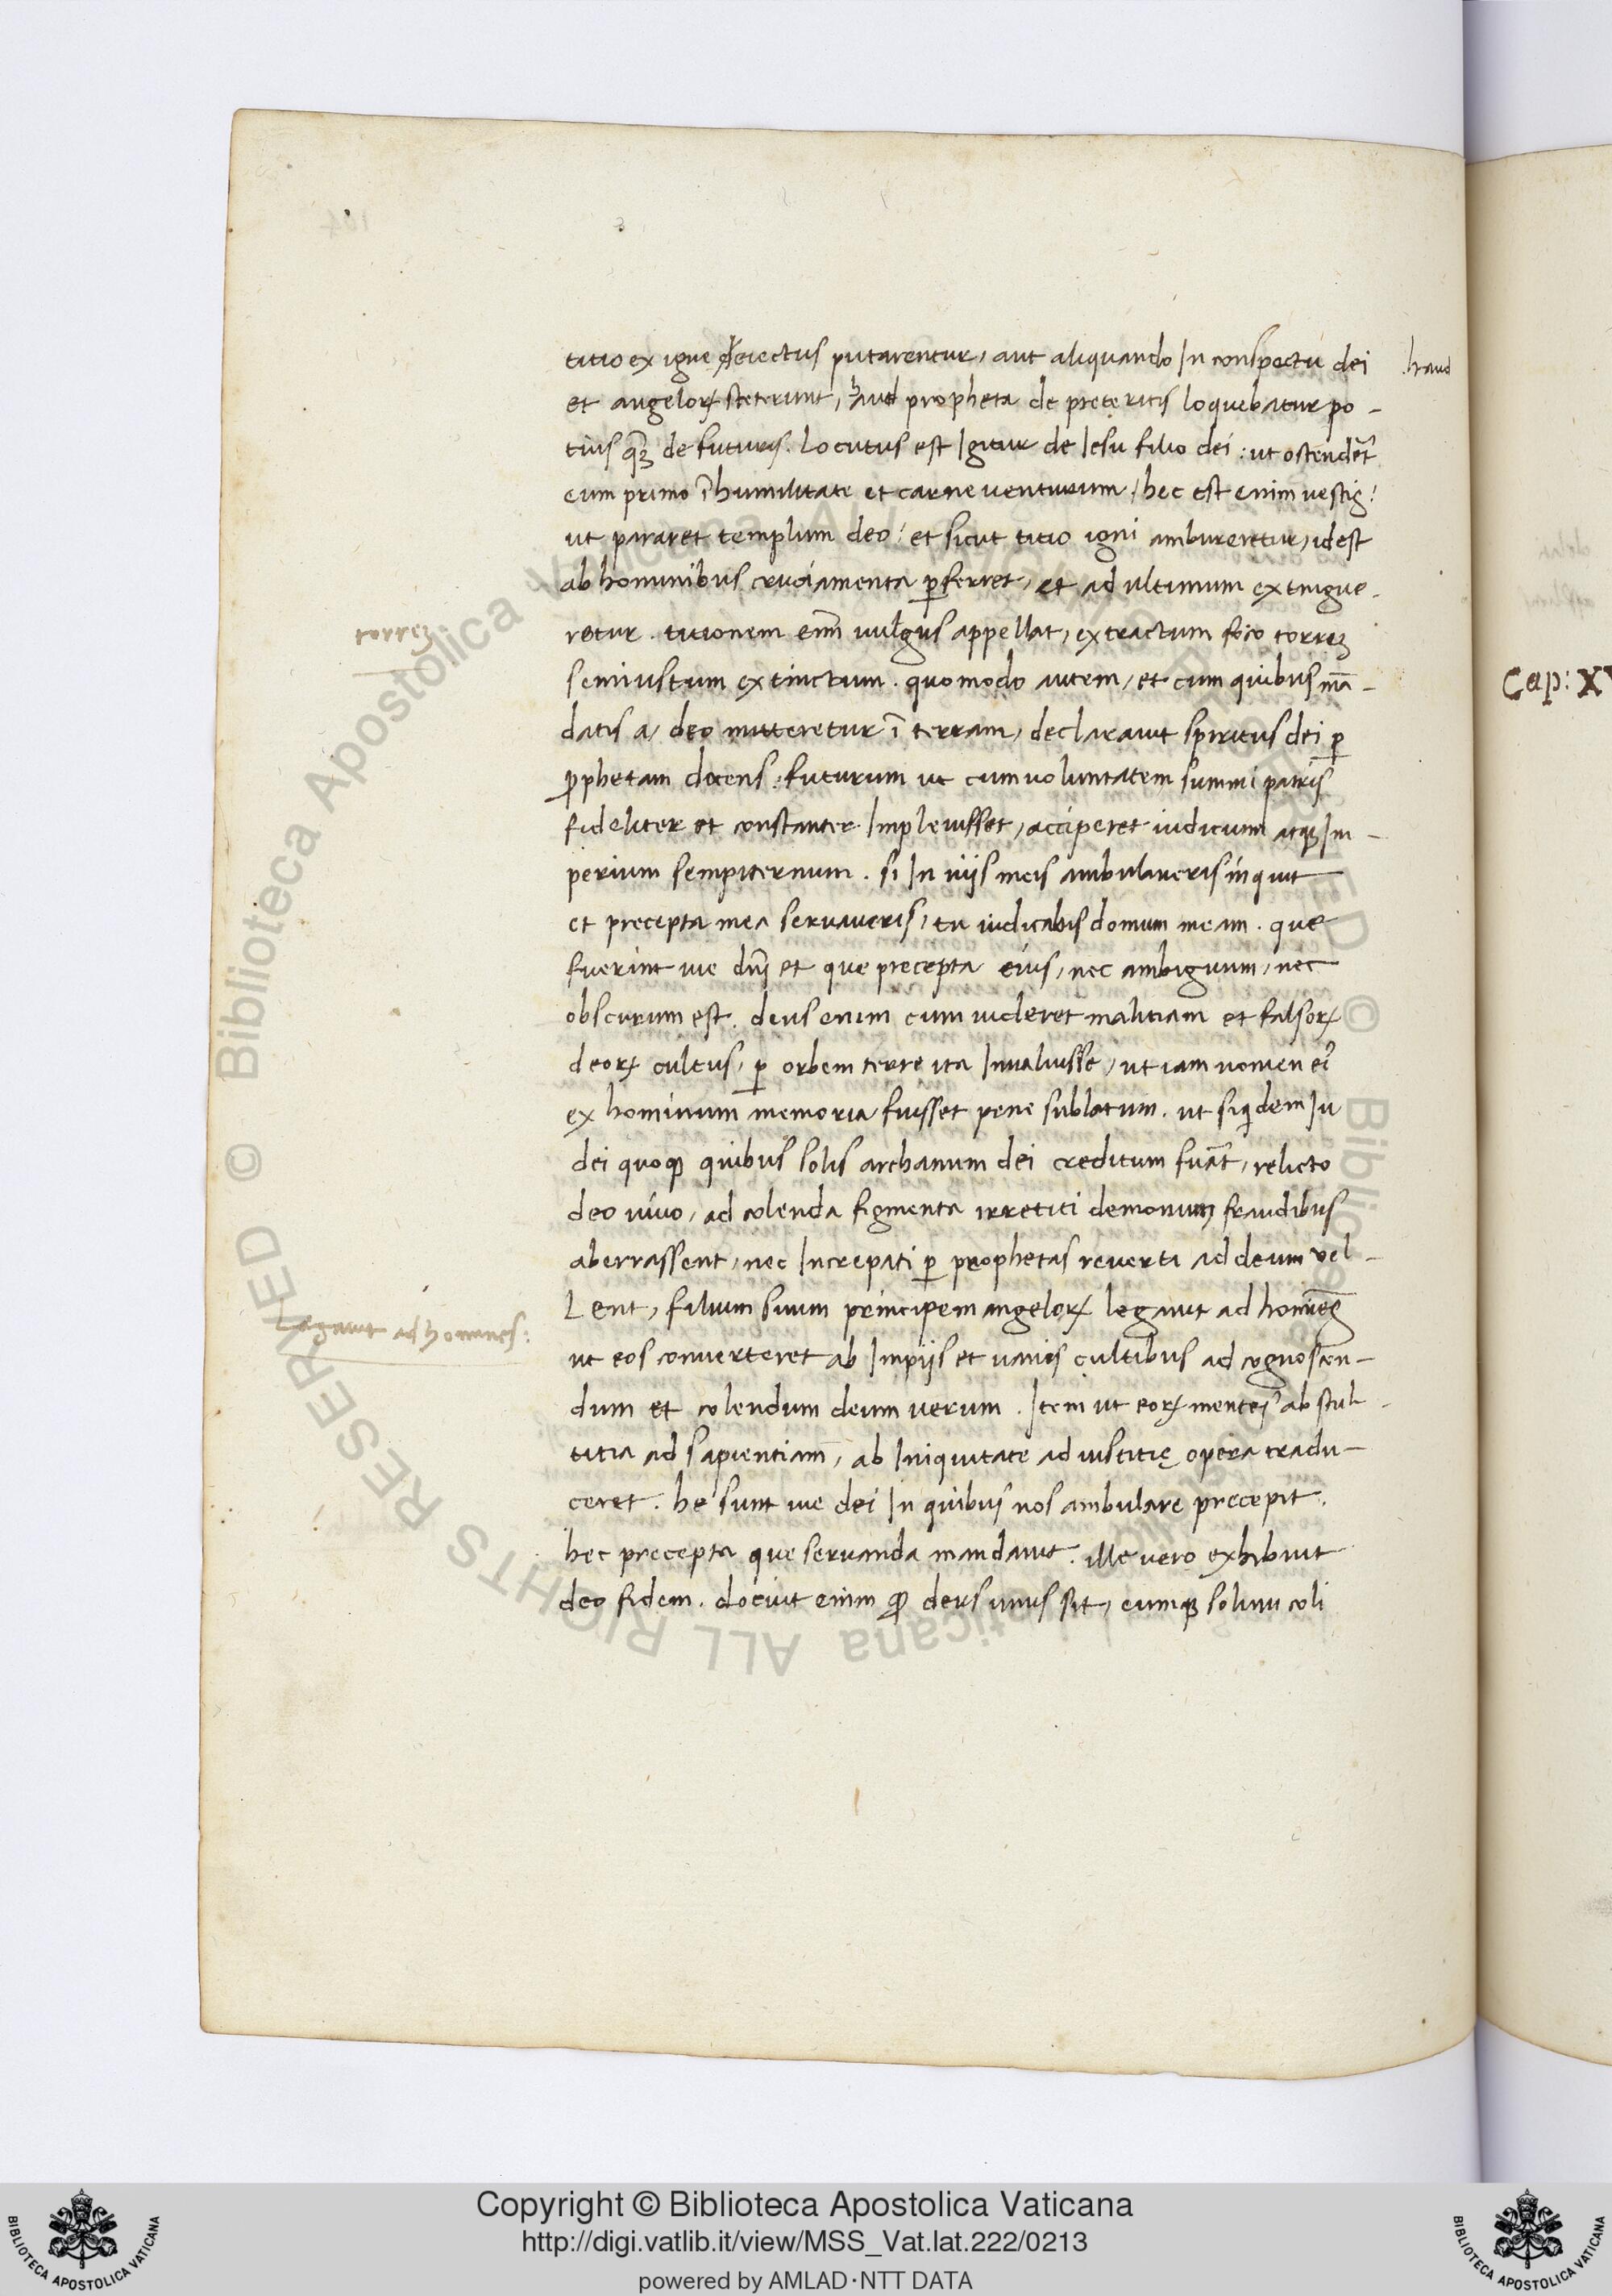 titio ex igne eiectus putarentur, aut aliquando In conspectu dei
haud
et angeloꝝ steterunt, haud propheta de preteritis loquebatur po-
tius qꝫ de futuris. locutus est Igitur de Iesu filio dei: ut ostendet̃
eum primo ĩ humilitate et carne venturum, hec est enim vestis!
ut pararet templum deo: et sicut titio igni amburetur, idest
ab hominibus cruciamenta ꝑferret, et ad ultimum extingue-
torrez
retur. titionem enĩ vulgus appellat, extractum foco torrez
semiustum extinctum. quomodo autem, et cum quibus mã-
datis a, deo mitteretur ĩ terram, declaravit spiritus dei ꝑ
ꝓphetam docens: futurum ut cum voluntatem summi patris
fideliter et constanter Implevisset, acciperet iudicium atqꝫ Im-
perium sempiternum. si In viis meis ambulaveris inquit
et precepta mea servaveris, tu iudicabis domum meam. que
fuerint vie dñi et que precepta eius, nec ambiguum, nec
obscurum est. deus enim cum videret malitiam et falsoꝝ
deoꝝ cultus, ꝑ orbem terre ita Invaluisse, ut iam nomen ei᾽
ex hominum memoria fuisset pene sublatum. ut siqidem Iu
dei quoqꝫ quibus solis archanum dei creditum fuãt, relicto
deo vivo, ad colenda figmenta irretiti demonum fraudibus
aberrassent, nec Increpati ꝑ prophetas reverti ad deum vel-
Legavit ad homines:
Lent, filium suum principem angeloꝝ legavit ad homiẽs
ut eos converteret ab Impiis et vanis cultibus ad cognoscen-
dum et colendum deum verum. Item ut eoꝝ mentes ab stul-
titia ad sapientiam, ab Iniquitate ad iustitię opera tradu-
ceret. he sunt vie dei In quibus nos ambulare precepit.
hec precepta que servanda mandavit. ille vero exhibuit
deo fidem. docuit enim ꝙ deus unus sit, eumqꝫ solum coli
Cap: XV
Copyright © Biblioteca Apostolica Vaticana
http://digi.vatlib.it/view/MSS_Vat.lat.222/0213
powered by AMLAD·NTT DATA
BIBLIOTECA APOSTOLICA VATICANA
BIBLIOTECA APOSTOLICA VATICANA
© Biblioteca Apostolica Vaticana ALL RIGHTS RESERVED